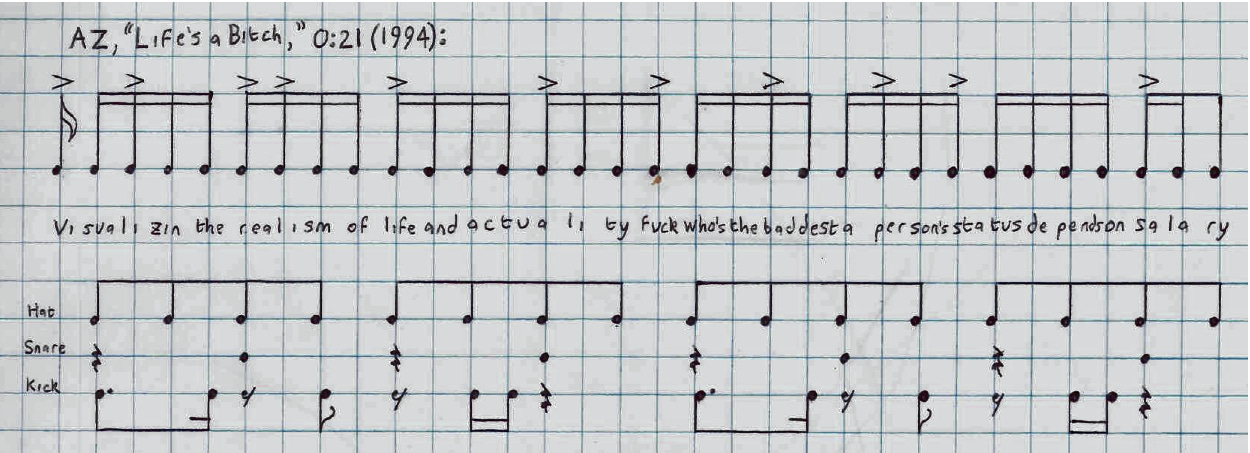 AZ, "Life's a Bitch," 0:21 (1994):
Vi sual i zin the real ism of life and actua li ty Fuck who's the baddest a person's sta tus de pends on sa la ry
Hat
Snare
Kick